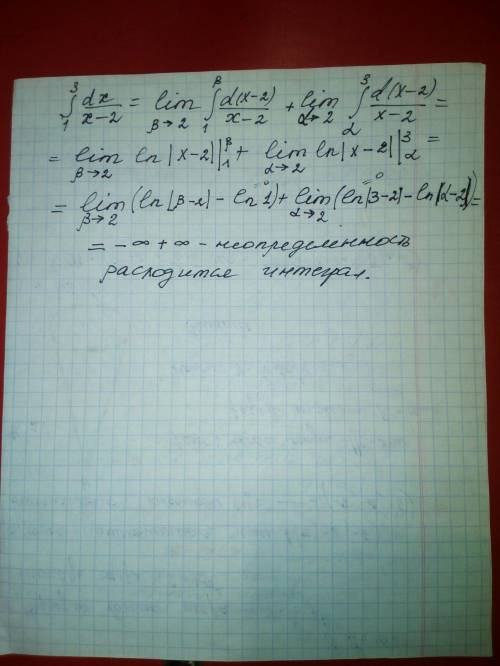 ∫₁³ dx/(x-2) = lim_{β→2} ∫₁^β d(x-2)/(x-2) + lim_{α→2} ∫_α³ d(x-2)/(x-2) =
= lim_{β→2} ln|x-2| |₁^β + lim_{α→2} ln|x-2| |_α³ =
= lim_{β→2} (ln|β-2| - ln 1) + lim_{α→2} (ln|3-2| - ln|α-2|) =
= -∞ + ∞ - неопределенность
расходится интеграл.